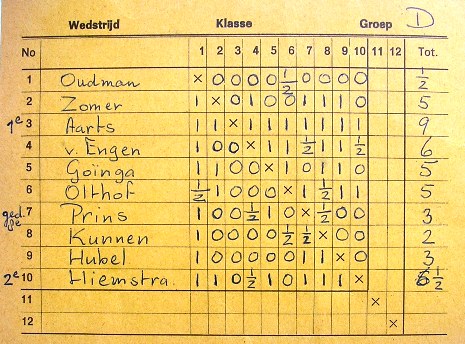 Wedstrijd Klasse Groep D
No 1 2 3 4 5 6 7 8 9 10 11 12 Tot.
1 Oudman × 0 0 0 0 ½ 0 0 0 0 ½
2 Zomer 1 × 0 1 0 0 1 1 1 0 5
1e 3 Aarts 1 1 × 1 1 1 1 1 1 1 9
4 v. Engen 1 0 0 × 1 1 ½ 1 1 ½ 6
5 Goïnga 1 1 0 0 × 1 0 1 1 0 5
6 Olthof ½ 1 0 0 0 × 1 ½ 1 1 5
ged. 7 Prins 1 0 0 ½ 1 0 × ½ 0 0 3
8 Kunnen 1 0 0 0 0 ½ ½ × 0 0 2
9 Hubel 1 0 0 0 0 0 1 1 × 0 3
2e 10 Hiemstra. 1 1 0 ½ 1 0 1 1 1 × 6½
11 ×
12 ×